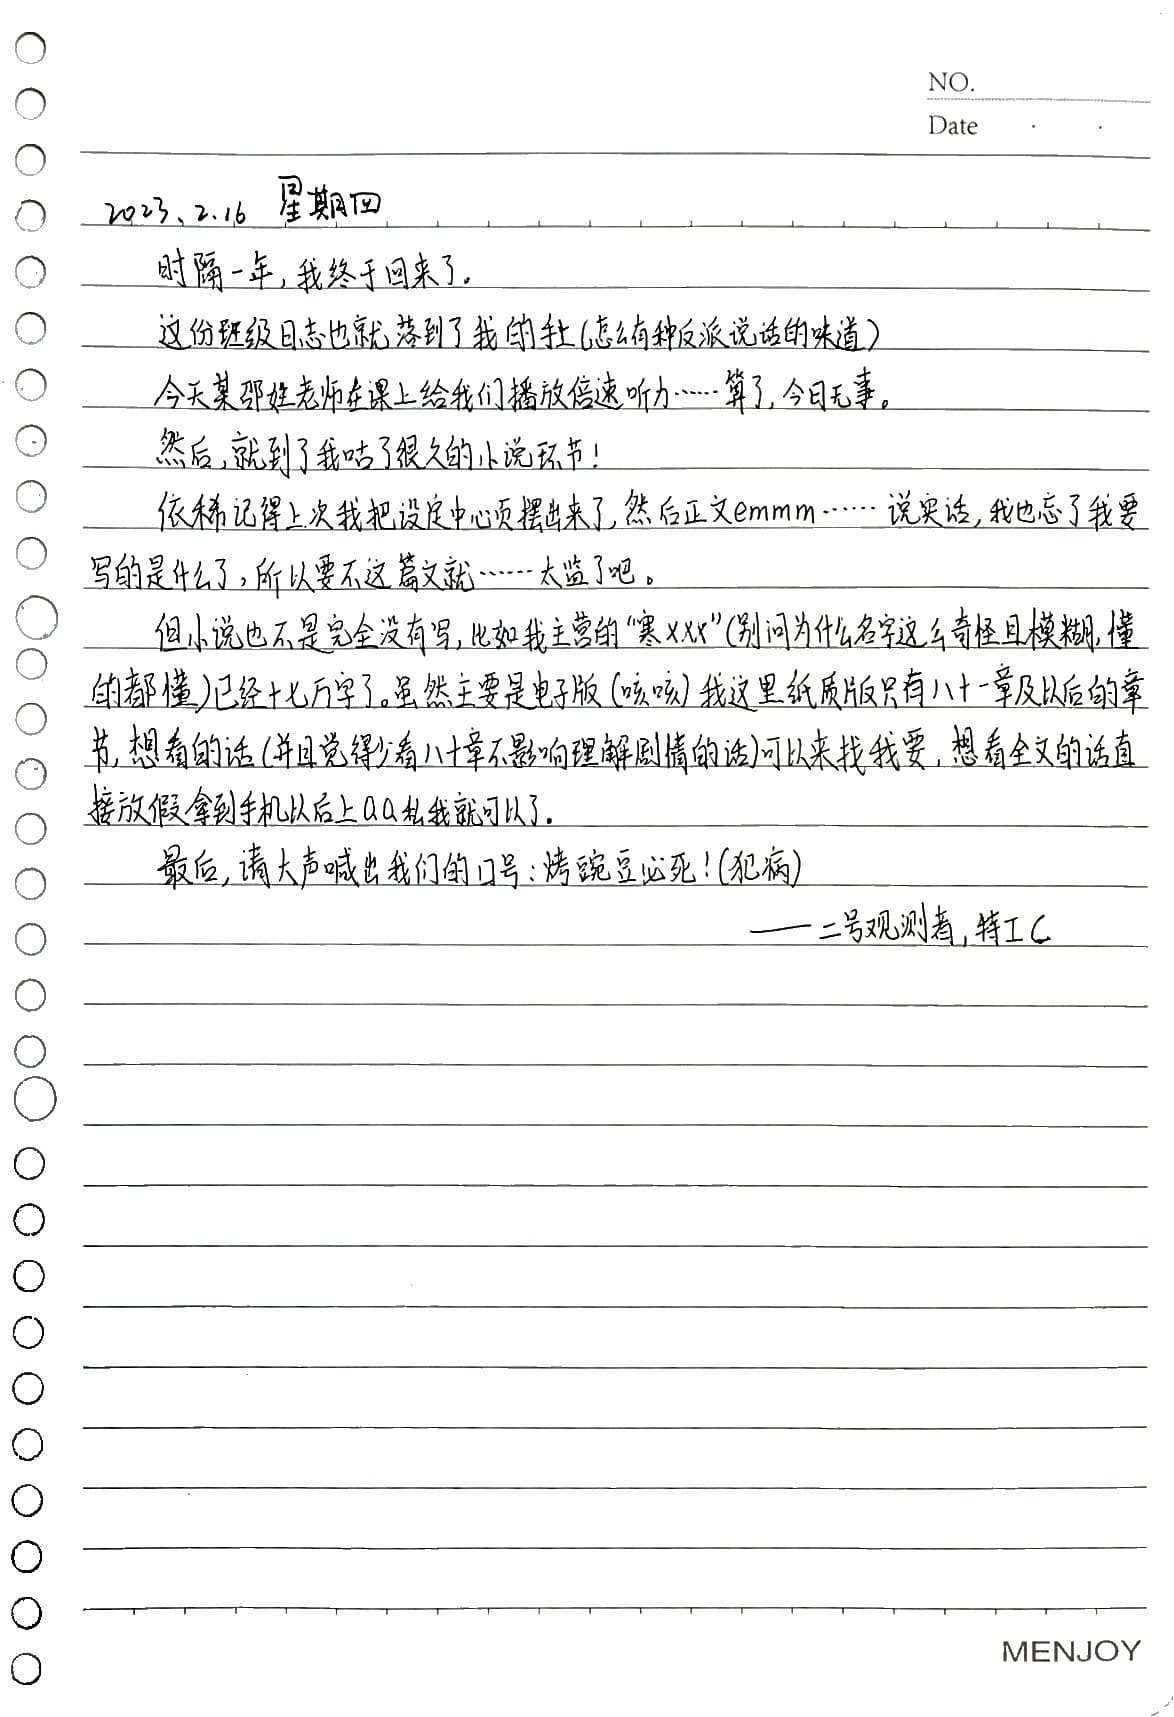 NO.
Date
2023.2.16 星期四
时隔一年,我终于回来了。
这份班级日志也就落到了我的手上(怎么有种反派说话的味道)
今天某邵姓老师在课上给我们播放倍速听力……算了,今日无事。
然后,就到了我咕了很久的小说环节!
依稀记得上次我把设定中心页摆出来了,然后正文emmm……说实话,我也忘了我要
写的是什么了,所以要不这篇文就……太监了吧。
但小说也不是完全没有写,比如我主营的“寒xxx”(别问为什么名字这么奇怪且模糊,懂
的都懂)已经十七万字了。虽然主要是电子版(咳咳)我这里纸质版只有八十一章及以后的章
节,想看的话(并且觉得少看八十章不影响理解剧情的话)可以来找我要,想看全文的话直
接放假拿到手机以后上QQ私我就可以了。
最后,请大声喊出我们的口号:烤豌豆必死!(犯病)
——二号观测者,特工C
MENJOY